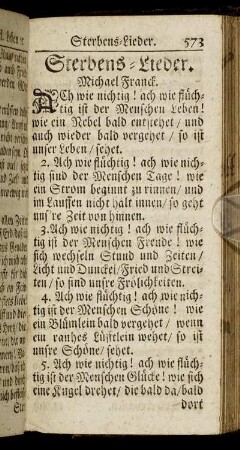 Sterbens-Lieder. 573
Sterbens-Lieder.
Michael Franck.
ACh wie nichtig! ach wie flüch-
tig ist der Menschen Leben!
wie ein Nebel bald entstehet / und
auch wieder bald vergehet / so ist
unser Leben / sehet.
2. Ach wie flüchtig! ach wie nich-
tig sind der Menschen Tage! wie
ein Strom beginnt zu rinnen / und
im Lauffen nicht hält innen / so geht
uns're Zeit von hinnen.
3. Ach wie nichtig! ach wie flüch-
tig ist der Menschen Freude! wie
sich wechseln Stund und Zeiten /
Licht und Dunckel / Fried und Strei-
ten / so sind unsre Frölichkeiten.
4. Ach wie flüchtig! ach wie nich-
tig ist der Menschen Schöne! wie
ein Blümlein bald vergehet / wenn
ein rauhes Lüftlein wehet / so ist
unsre Schöne / sehet.
5. Ach wie nichtig! ach wie flüch-
tig ist der Menschen Glücke! wie sich
eine Kugel drehet / die bald da / bald
dort